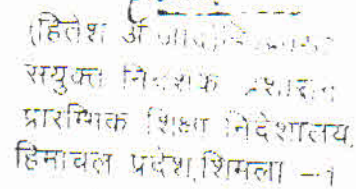 (हितेश आजाद)
सयुक्त निदेशक प्रशासन
प्रारम्भिक शिक्षा निदेशालय,
हिमाचल प्रदेश,शिमला -1